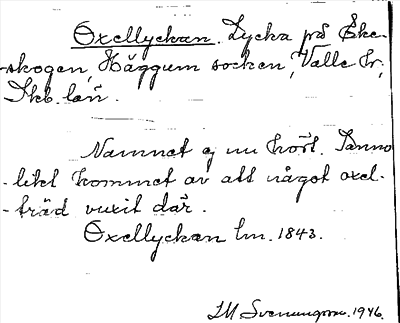 Oxellyckan. Lycka på Eke-
-skogen, Häggum socken, Valle hr,
Skb. län.
Namnet ej nu hört. Sanno-
-likt kommet av att något oxel-
-träd vuxit där.
Oxellyckan lm. 1843.
Svenungsson. 1946.